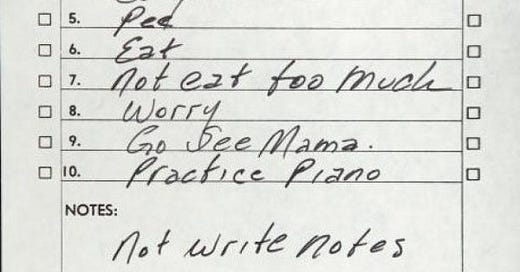 5. Pee
6. Eat
7. Not eat too much
8. Worry
9. Go See Mama.
10. Practice Piano
NOTES:
Not write notes